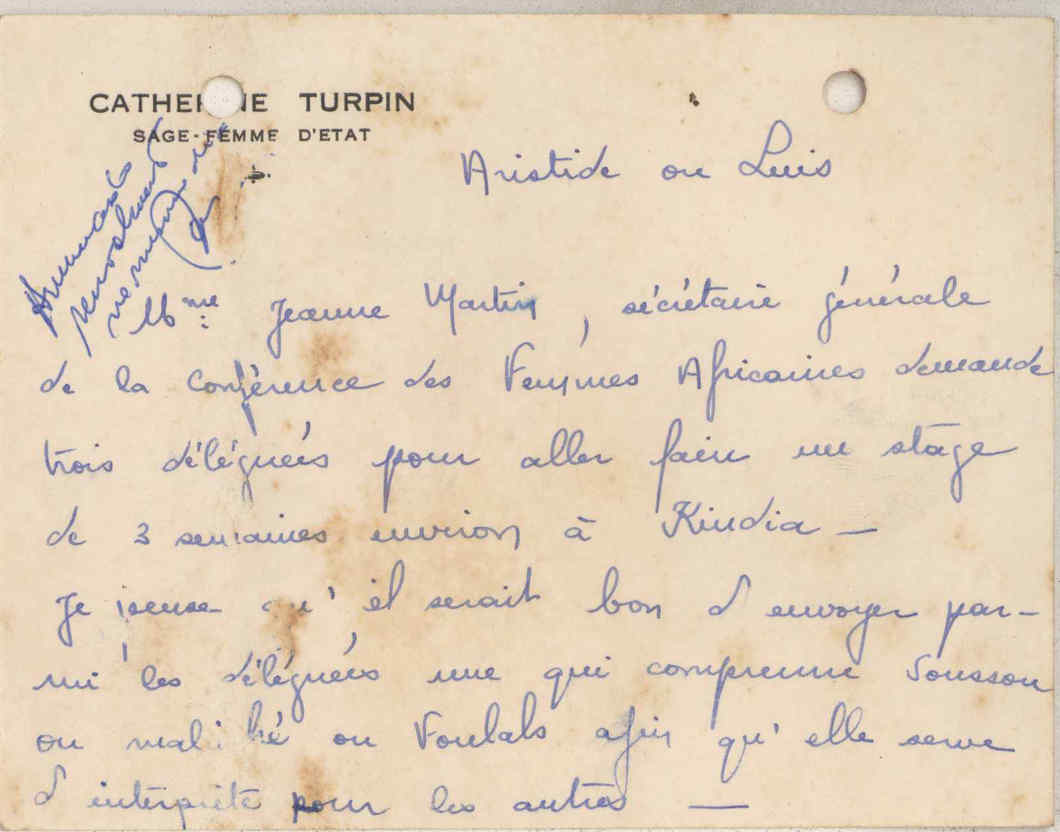 CATHERINE TURPIN
SAGE-FEMME D'ETAT
Aristide ou Luis
Mme Jeanne Martin, sécrétaire générale
de la Conférence des Femmes Africaines demande
trois délégueés pour aller faire un stage
de 3 semaines environ à Kindia —
Je pense qu'il serait bon d'envoyer par-
mi les délégueés une qui comprenne Soussou
ou malinké ou Foulah afin qu'elle serve
d'interprète pour les autres —